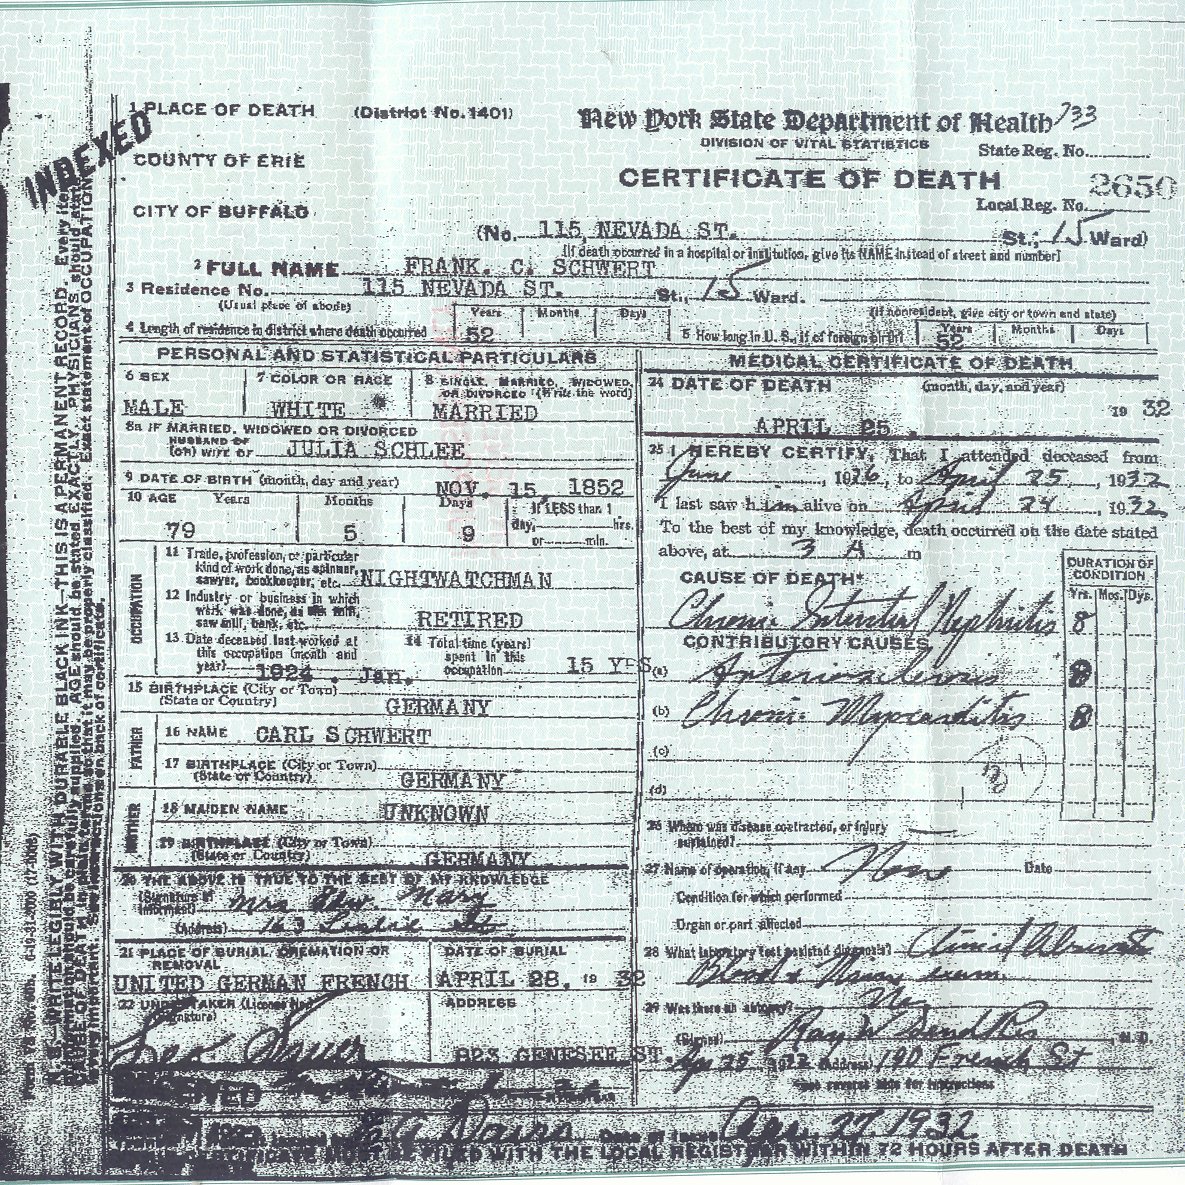 1 PLACE OF DEATH (District No. 1401)
COUNTY OF ERIE
CITY OF BUFFALO
INDEXED
New York State Department of Health 733
DIVISION OF VITAL STATISTICS
State Reg. No.
CERTIFICATE OF DEATH
2650
Local Reg. No.
(No. 115 NEVADA ST. St.; 15 Ward)
[If death occurred in a hospital or institution, give its NAME instead of street and number]
2 FULL NAME FRANK. C. SCHWERT
3 Residence No. 115 NEVADA ST. St., 15 Ward.
(Usual place of abode) (If nonresident, give city or town and state)
4 Length of residence in district where death occurred Years 52 Months Days
5 How long in U. S., if of foreign birth? Years 52 Months Days
PERSONAL AND STATISTICAL PARTICULARS
6 SEX MALE
7 COLOR OR RACE WHITE
8 SINGLE, MARRIED, WIDOWED, OR DIVORCED (Write the word) MARRIED
8a IF MARRIED, WIDOWED OR DIVORCED
HUSBAND OF
(OR) WIFE OF JULIA SCHLEE
9 DATE OF BIRTH (month, day and year) NOV. 15, 1852
10 AGE Years Months Days If LESS than 1
79 5 9 day, hrs.
or min.
OCCUPATION
11 Trade, profession, or particular
kind of work done, as spinner,
sawyer, bookkeeper, etc. NIGHTWATCHMAN
12 Industry or business in which
work was done, as silk mill,
saw mill, bank, etc. RETIRED
13 Date deceased last worked at
this occupation (month and
year) 1924 . Jan.
14 Total time (years)
spent in this
occupation 15 YRS
15 BIRTHPLACE (City or Town)
(State or Country) GERMANY
FATHER
16 NAME CARL SCHWERT
17 BIRTHPLACE (City or Town)
(State or Country) GERMANY
MOTHER
18 MAIDEN NAME UNKNOWN
19 BIRTHPLACE (City or Town)
(State or Country) GERMANY
20 THE ABOVE IS TRUE TO THE BEST OF MY KNOWLEDGE
(Signature of
Informant) Mrs
(Address) 163
21 PLACE OF BURIAL, CREMATION OR
REMOVAL
UNITED GERMAN FRENCH
DATE OF BURIAL
APRIL 28, 19 32
22 UNDERTAKER (License No.)
(Signature)
ADDRESS
823 GENESEE ST.
MEDICAL CERTIFICATE OF DEATH
24 DATE OF DEATH (month, day, and year)
APRIL 25 . 19 32
25 I HEREBY CERTIFY, That I attended deceased from
June, 1926, to April 25, 1932
I last saw him alive on April 24, 1932
To the best of my knowledge, death occurred on the date stated
above, at 3 A m
CAUSE OF DEATH*
DURATION OF
CONDITION
Yrs. Mos. Dys.
Chronic Interstitial Nephritis 8
CONTRIBUTORY CAUSES
(a) Arteriosclerosis 8
(b) Chronic Myocarditis 8
(c)
(d)
26 Where was disease contracted, or injury
sustained?
27 Name of operation, if any None Date
Condition for which performed
Organ or part affected
28 What laboratory test assisted diagnosis? Clinical
Blood & exam.
29 Was there an autopsy? No
(Signed) Ray W , M. D.
Ap 25 1932 (Address) 190 French St
*See reverse side for instructions
Davis Date of Issue Apr. 27, 1932
CERTIFICATE MUST BE FILED WITH THE LOCAL REGISTRAR WITHIN 72 HOURS AFTER DEATH
N. B.—WRITE LEGIBLY WITH DURABLE BLACK INK—THIS IS A PERMANENT RECORD. Every item
of information should be carefully supplied. AGE should be stated EXACTLY. PHYSICIANS should state
CAUSE OF DEATH in plain terms, so that it may be properly classified. Exact statement of OCCUPATION
is very important. See instructions on back of certificate.